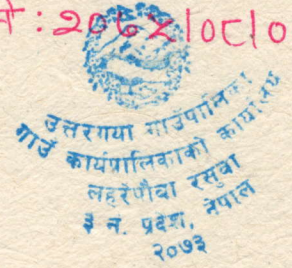 : २०७४।०८।०
उत्तरगया गाउँपालिका
गाउँ कार्यपालिकाको कार्यालय
लहरेपौवा रसुवा
३ नं. प्रदेश, नेपाल
२०७३